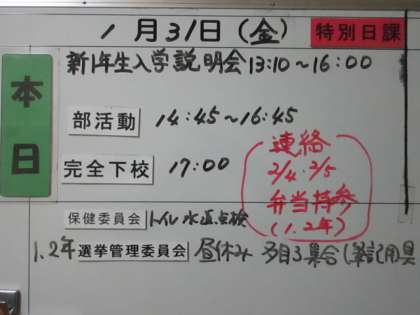 1月31日(金) 特別日課
本日
新1年生入学説明会13:10~16:00
部活動 14:45~16:45
完全下校 17:00
連絡
2/4.2/5
弁当持参
(1.2年)
保健委員会 トイレ水道点検
1.2年 選挙管理委員会 昼休み 多目3集合(筆記用具